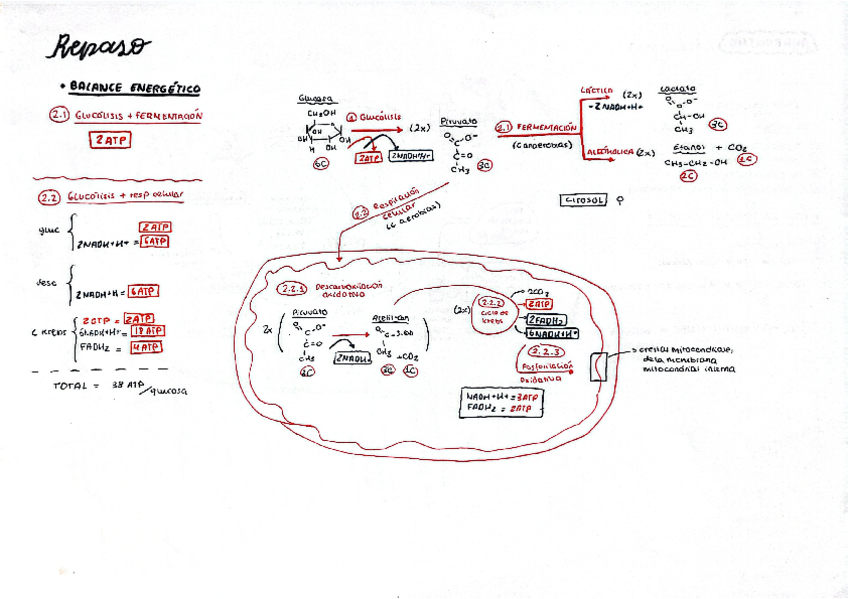 Repaso
• BALANCE ENERGÉTICO
2.1 GLUCÓLISIS + FERMENTACIÓN
2 ATP
2.2 GLUCÓLISIS + resp celular
gluc
2 ATP
2NADH+H+ = 6ATP
2NADH+H = 6ATP
2GTP = 2ATP
6NADH+H+ = 18 ATP
FADH2 = 4ATP
TOTAL = 38 ATP/glucosa
Glucosa
CH2OH
OH
OH
OH
H
OH
6C
Glucólisis
(2x)
2ATP
2NADH+H+
Piruvato
O
O-
C
C=O
CH3
3C
2.1 FERMENTACIÓN
(anaerobias)
LÁCTICA
(2x)
-2NADH+H+
Lactato
O
O-
CH-OH
CH3
3C
ALCOHÓLICA (2x)
Etanol + CO2
CH3-CH2-OH
1C
2C
CITOSOL
2.2 Respiración
celular
(aerobias)
2.2.1 Descarboxilación
oxidativa
2x
Piruvato
O
C-O-
C=O
CH3
3C
2NADH
Acetil-CoA
CH3
+CO2
2C
1C
(2x)
2.2.2
Ciclo de
Krebs
2CO2
2ATP
2FADH2
6NADH+H+
2.2.3
Fosforilación
Oxidativa
NADH+H+ = 3ATP
FADH2 = 2ATP
crestas mitocondriales,
de la membrana
mitocondrial interna